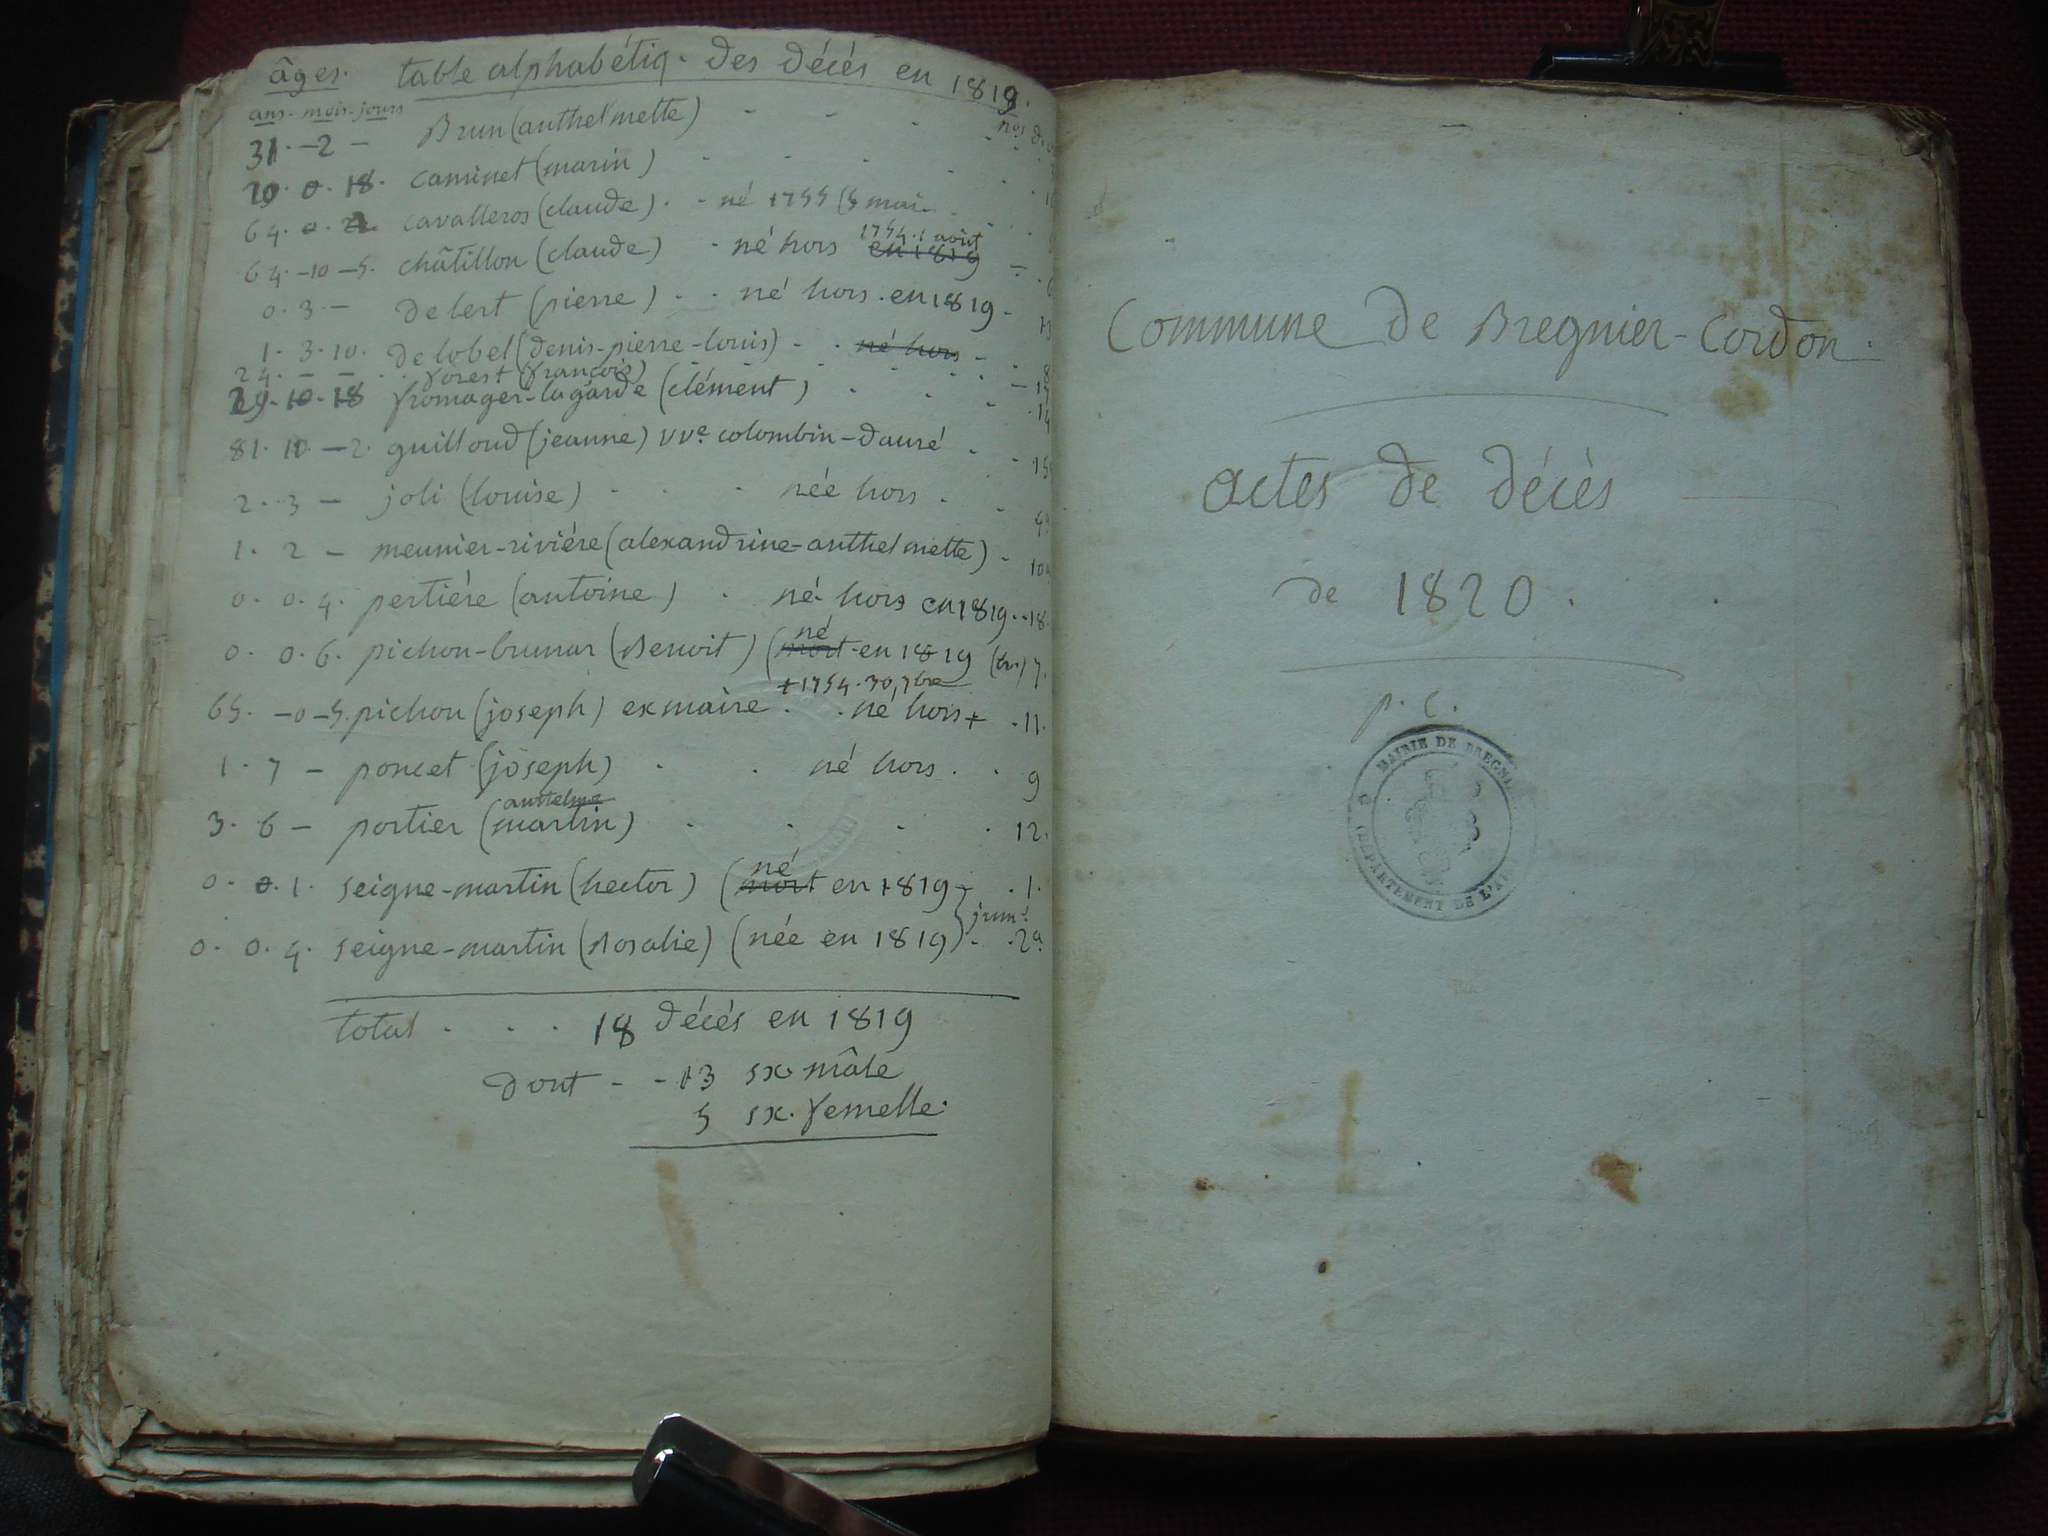 âges. table alphabétiq. des décès en 1819.
ans - mois - jours nos d.
31 - 2 - Brun (anthelmette)
0. 18. caminet (marin)
64. 0. cavalleros (claude) . - né 1755 (5 mai
1754. 1 août
64. - 10 - 5. châtillon (claude) . né hors en 1819
0. 3 - delert (pierre) . . né hors . en 1819 - 13
1. 3. 10. delobel (denis-pierre-louis) - . né hors - 8
24. - - forest (françois)
29. 10. 18 fromager-lagarde (clément) 14
81. 10. - 2. guilloud (jeanne) vve. colombin-dauré
2. 3 - joli (louise) née hors .
1. 2 - meunier-rivière (alexandrine-anthelmette) - 10
0. 0. 4. pertière (antoine) . né hors en 1819 . . 18.
né
0. 0. 6. pichon-brunar (Benoit) (mort en 1819 7.
+ 1754. 30, 7bre
65. - 0 - 5. pichon (joseph) exmaire . . né hors + . 11.
1. 7 - poncet (joseph) . . né hors . . 9
anthelme
3. 6 - portier (martin) 12.
né
0. 0. 1. seigne-martin (hector) (mort en 1819 . 1.
jum.
0. 0. 4. seigne-martin (Rosalie) (née en 1819) - . 2.
total . . . 18 décès en 1819
dont - - 13 sx. mâle
5 sx. femelle.
Commune de Bregnier-Cordon.
actes de décès
de 1820.
p. C.
MAIRIE DE BREGNI
DÉPARTEMENT DE L'A